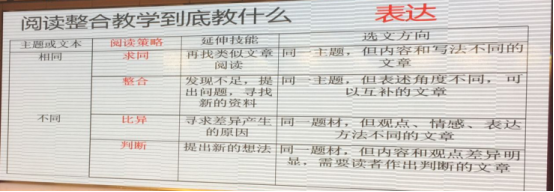 阅读整合教学到底教什么 表达
主题或文本 阅读策略 延伸技能 选文方向
相同 求同 再找类似文章 同一主题，但内容和写法不同的
阅读 文章
整合 发现不足，提 同一主题，但表述角度不同，可
出问题，寻找 以互补的文章
新的资料
不同 比异 寻求差异产生 同一题材，但观点、情感、表达
的原因 方法不同的文章
判断 提出新的想法 同一题材，但内容和观点差异明
显，需要读者作出判断的文章